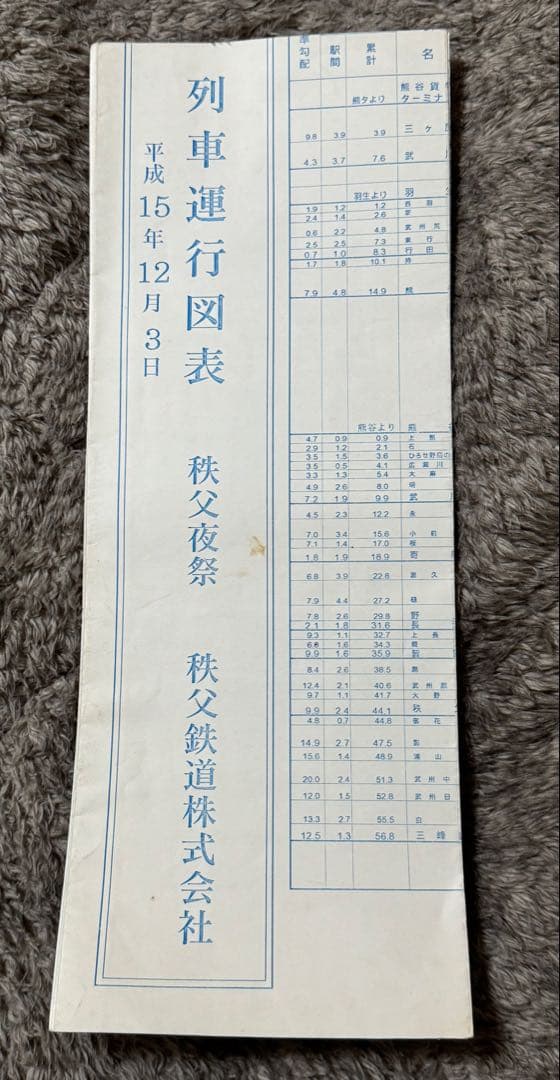 列車運行図表 秩父夜祭 秩父鉄道株式会社
平成15年12月3日
準勾配 駅間 累計 名
熊谷貨
熊タより ターミナ
9.8 3.9 3.9 三ケ
4.3 3.7 7.6 武
羽生より 羽
1.9 1.2 1.2 西羽
2.4 1.4 2.6
0.6 2.2 4.8 武州荒
2.5 2.5 7.3 東行
0.7 1.0 8.3 行田
1.7 1.8 10.1 持
7.9 4.8 14.9 熊
熊谷より 熊
4.7 0.9 0.9 上熊
2.9 1.2 2.1 石
3.5 1.5 3.6 ひろせ野鳥の
3.5 0.5 4.1 広瀬川
3.3 1.3 5.4 大麻
4.9 2.6 8.0 明
7.2 1.9 9.9 武
4.5 2.3 12.2 永
7.0 3.4 15.6 小前
7.1 1.4 17.0 桜
1.8 1.9 18.9 寄
6.8 3.9 22.8 波久
7.9 4.4 27.2 樋
7.8 2.6 29.8 野
2.1 1.8 31.6 長
9.3 1.1 32.7 上長
6.6 1.6 34.3 親
9.9 1.6 35.9 皆
8.4 2.6 38.5 黒
12.4 2.1 40.6 武州原
9.7 1.1 41.7 大野
9.9 2.4 44.1 秩
4.8 0.7 44.8 御花
14.9 2.7 47.5 影
15.6 1.4 48.9 浦山
20.0 2.4 51.3 武州中
12.0 1.5 52.8 武州日
13.3 2.7 55.5 白
12.5 1.3 56.8 三峰